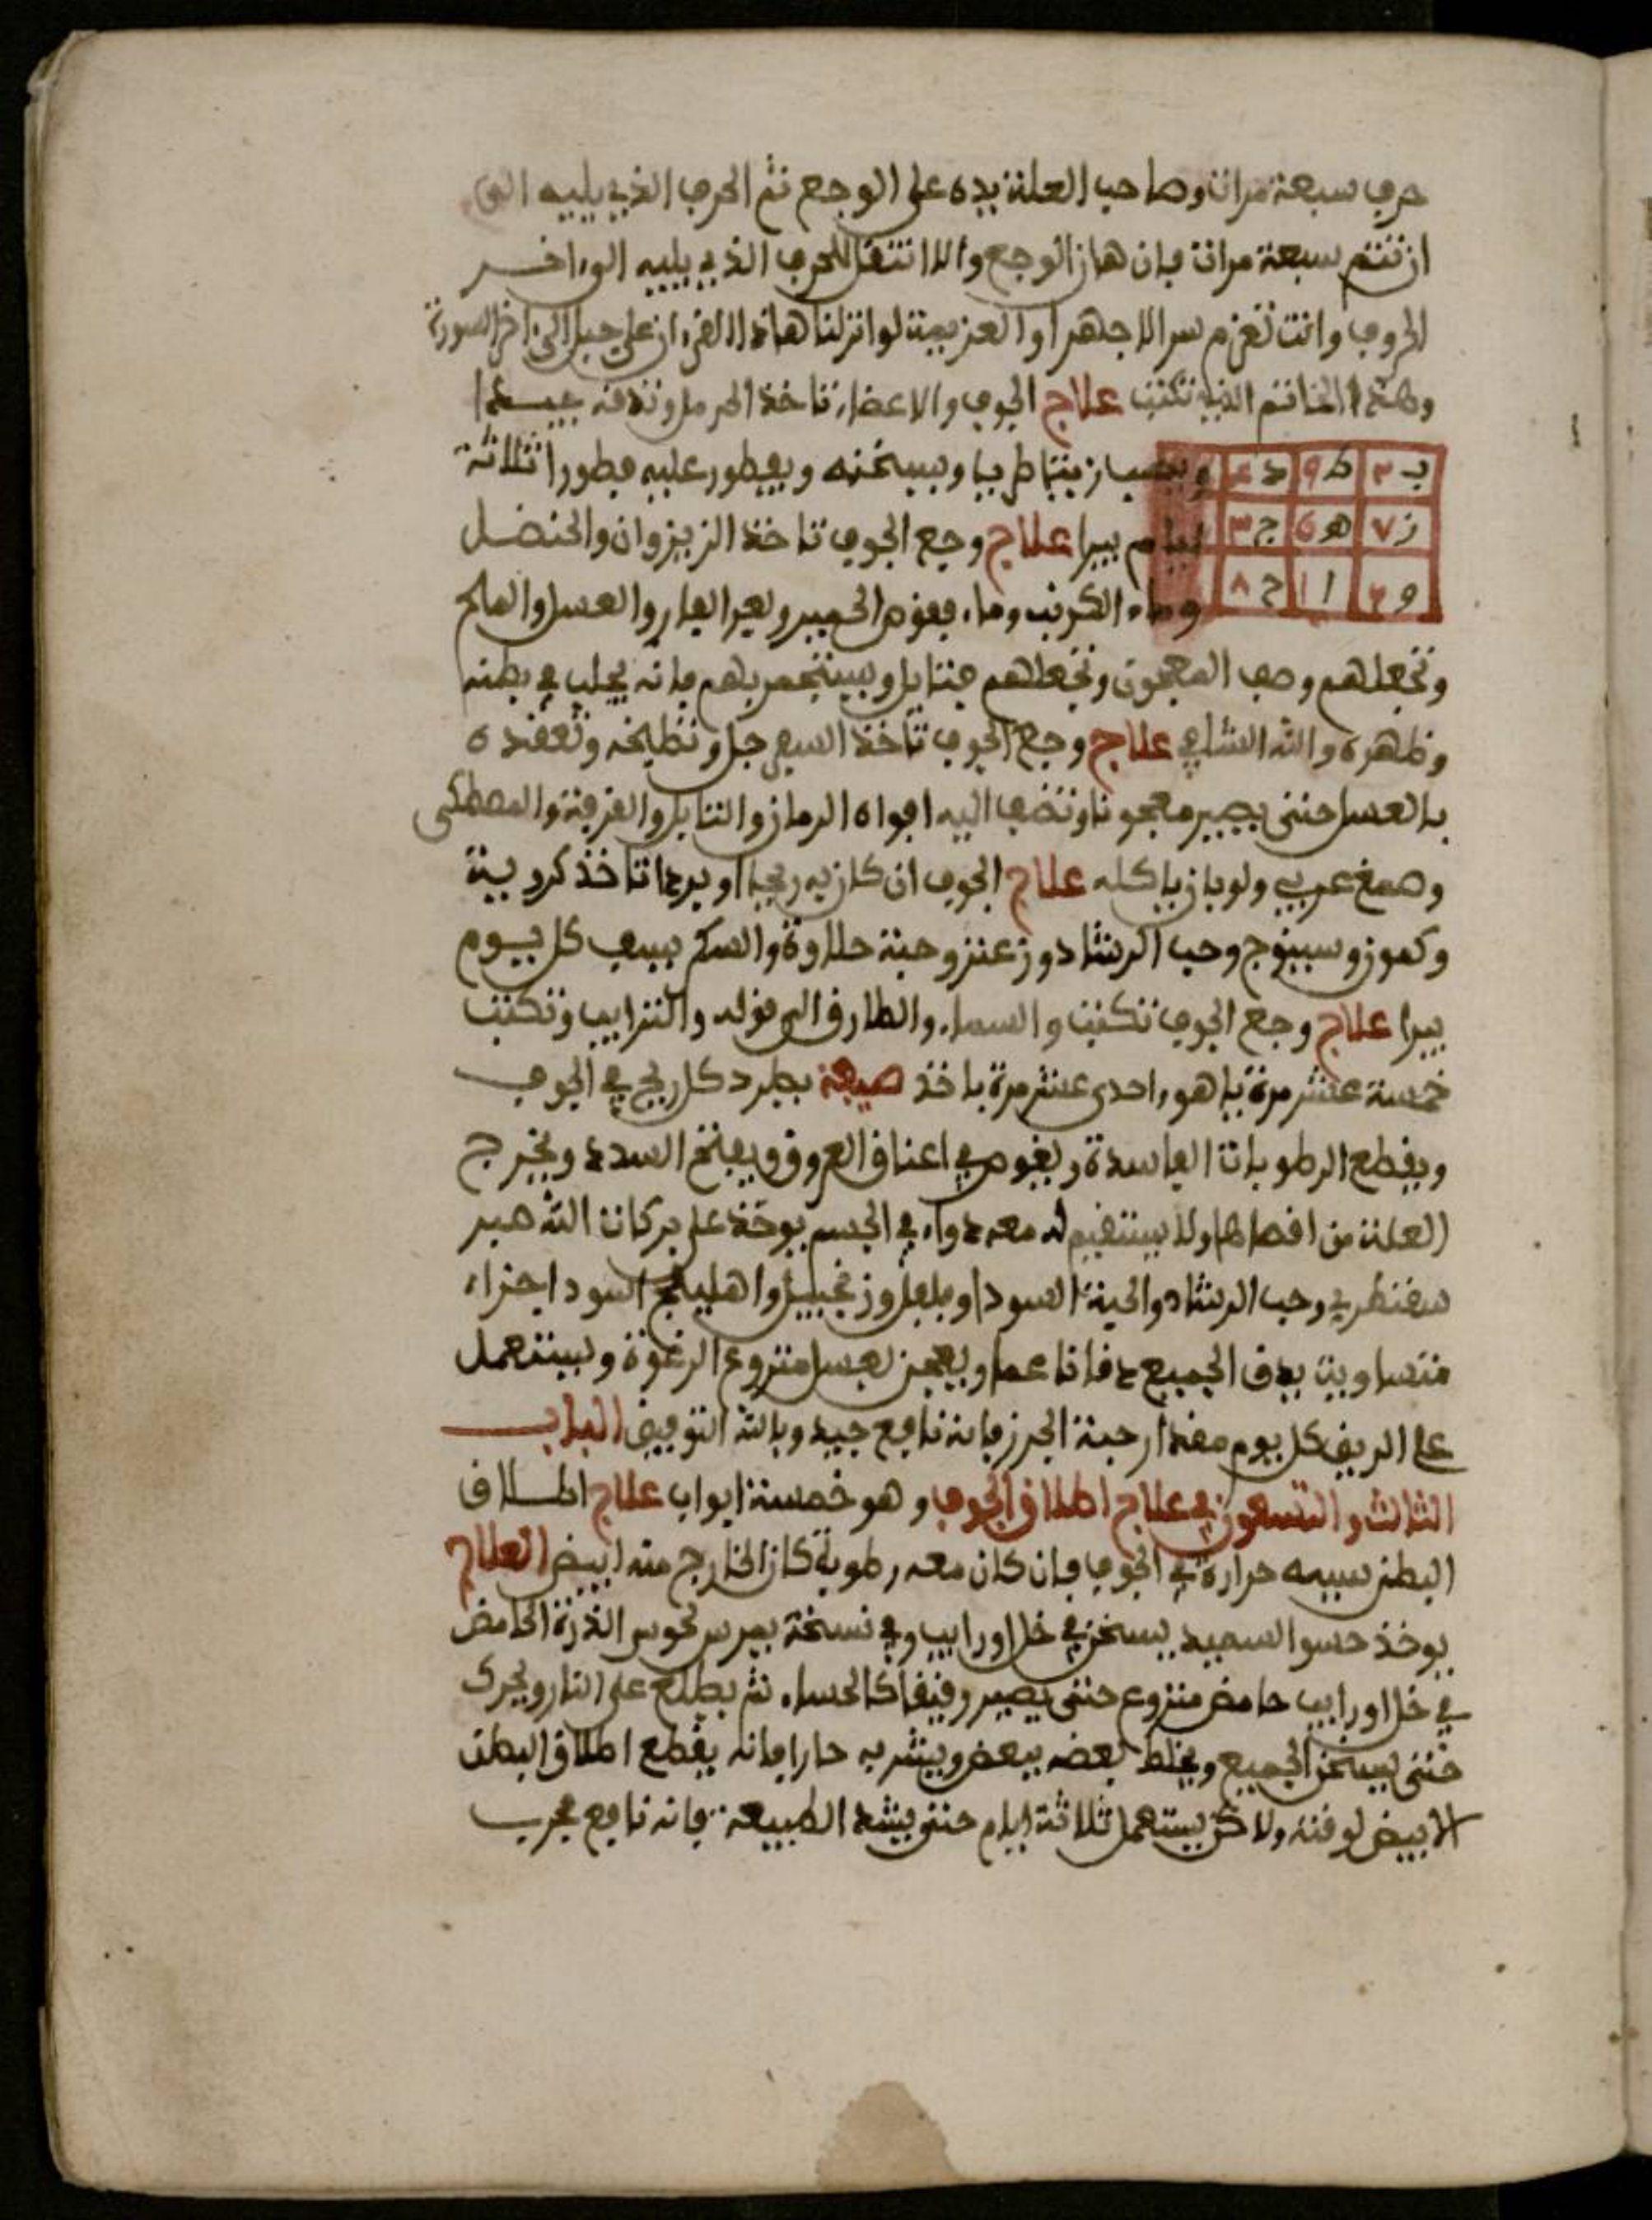 حرف سبعة مرات وصاحب العلة يده على الوجع ثم الحرف الذي يليه الى
ان تتم سبعة مرات فان هان الوجع والا انتقل للحرف الذي يليه الى اخر
الحروف وانت تعزم سرا لا جهرا والعزيمة لو انزلنا هاذا القرءان على جبل الى اخر السورة
وهذا الخاتم الذي تكتب علاج الجوف والاعضاء تاخذ الحرمل وتدقه جيدا
ب ٢ ط ٩ د ٤ زيتا طريا ويسخنه ويفطور عليه فطورا ثلاثة
ز ٧ ه ج ٣ ايام يبرا علاج وجع الجوف تاخذ الزبزوان والحنضل
و ا ١ ح ٨ وماء الكرنب وماء فقوص الحمير وبعر الفار والعسل والملح
وتجعلهم وصف المعجون وتجعلهم فتايل ويستحمر بهم فانه يجلب في بطنه
وظهره والله الشافي علاج وجع الجوف تاخذ السفرجل وتطبخه وتعقده
بالعسل حتى يصير معجونا وتضف اليه افواه الرمان والتنابل والقرفة والمصطكى
وصمغ عربي ولوبان ياكله علاج الجوف ان كان به ريحا او بردا تاخذ كروية
وكمون وسينوج وحب الرشاد وزعتر وحبة حلاوة والسكر يسف كل يوم
يبرا علاج وجع الجوف تكتب والسماء والطارق الى قوله والترايب وتكتب
خمسة عشر مرة ياهو واحدى عشر مرة ياخذ صيعة يطرد كل ريح في الجوف
ويقطع الرطوبات الفاسدة ويغوص في اعناق العروق ويفتح السدد ويخرج
العلة من اقصاها ولا يستقيم له معه دواء في الجسم يوخذ على بركات الله صبر
سقنطري وحب الرشاد والحبة السودا وفلفل وزنجبيل واهليلج اسود اجزاء
متساوية يدق الجميع دقا ناعما ويعجن بعسل منزوع الرغوة ويستعمل
على الريق كل يوم مقدار حبة الجرز فانه نافع جيد وبالله التوفيق الباب
الثالث والتسعون في علاج اطلاق الجوف وهو خمسة ابواب علاج اطلاق
البطن سببه حرارة في الجوف فان كان معه رطوبة كان الخارج منه ابيض العلاج
يوخذ حسو السميد يسخن في خل او رايب وفي نسخة يمرس نحوس الذرة الحامض
في خل او رايب حامض منزوع حتى يصير رقيقا كالحساء ثم يطلع على النار ويحرك
حتى يسخن الجميع ويخلط بعضه ببعض ويشربه حارا فانه يقطع اطلاق البطن
الابيض لوقته ولاكن يستعمل ثلاثة ايام حتى يشد الطبيعة فانه نافع مجرب